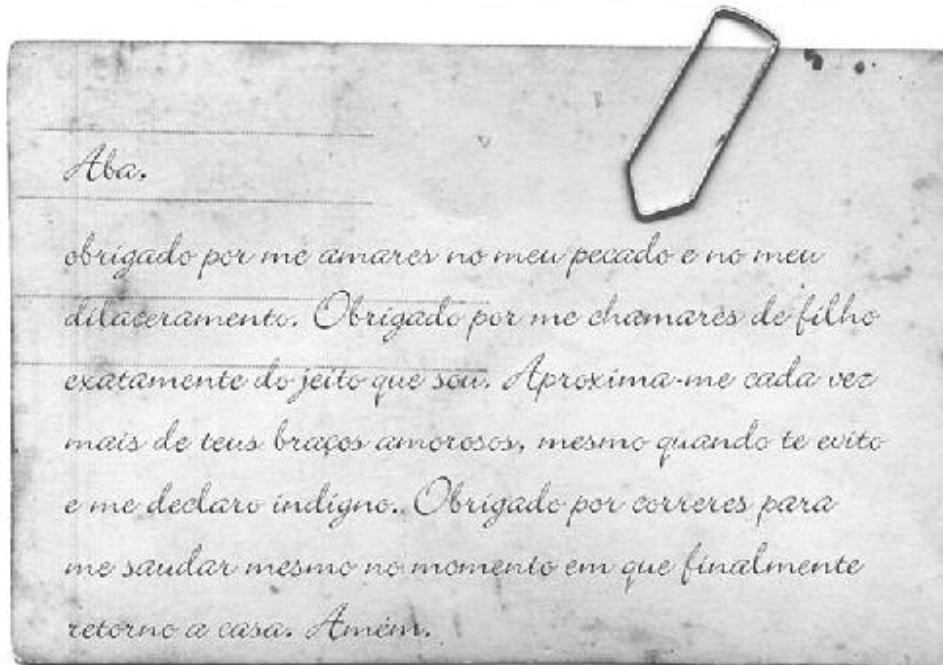 Aba.
obrigado por me amares no meu pecado e no meu
dilaceramento. Obrigado por me chamares de filho
exatamente do jeito que sou. Aproxima-me cada vez
mais de teus braços amorosos, mesmo quando te evito
e me declaro indigno. Obrigado por correres para
me saudar mesmo no momento em que finalmente
retorno a casa. Amém.